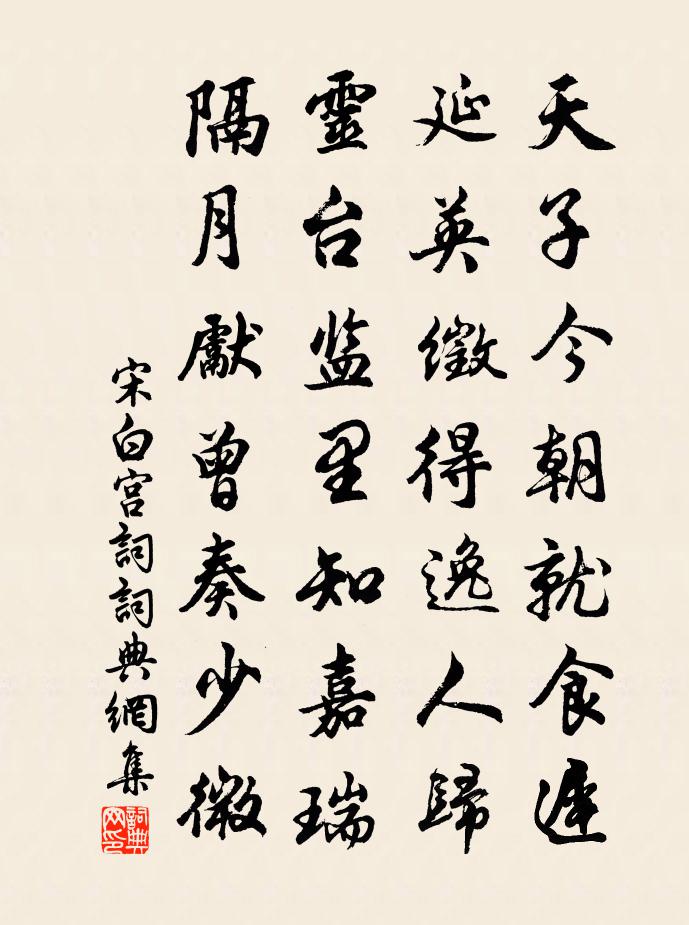 天子今朝就食遲
延英徵得逸人歸
靈台监里知嘉瑞
隔月獻曾奏少微
宋白宫詞詞典網集
詞典网印